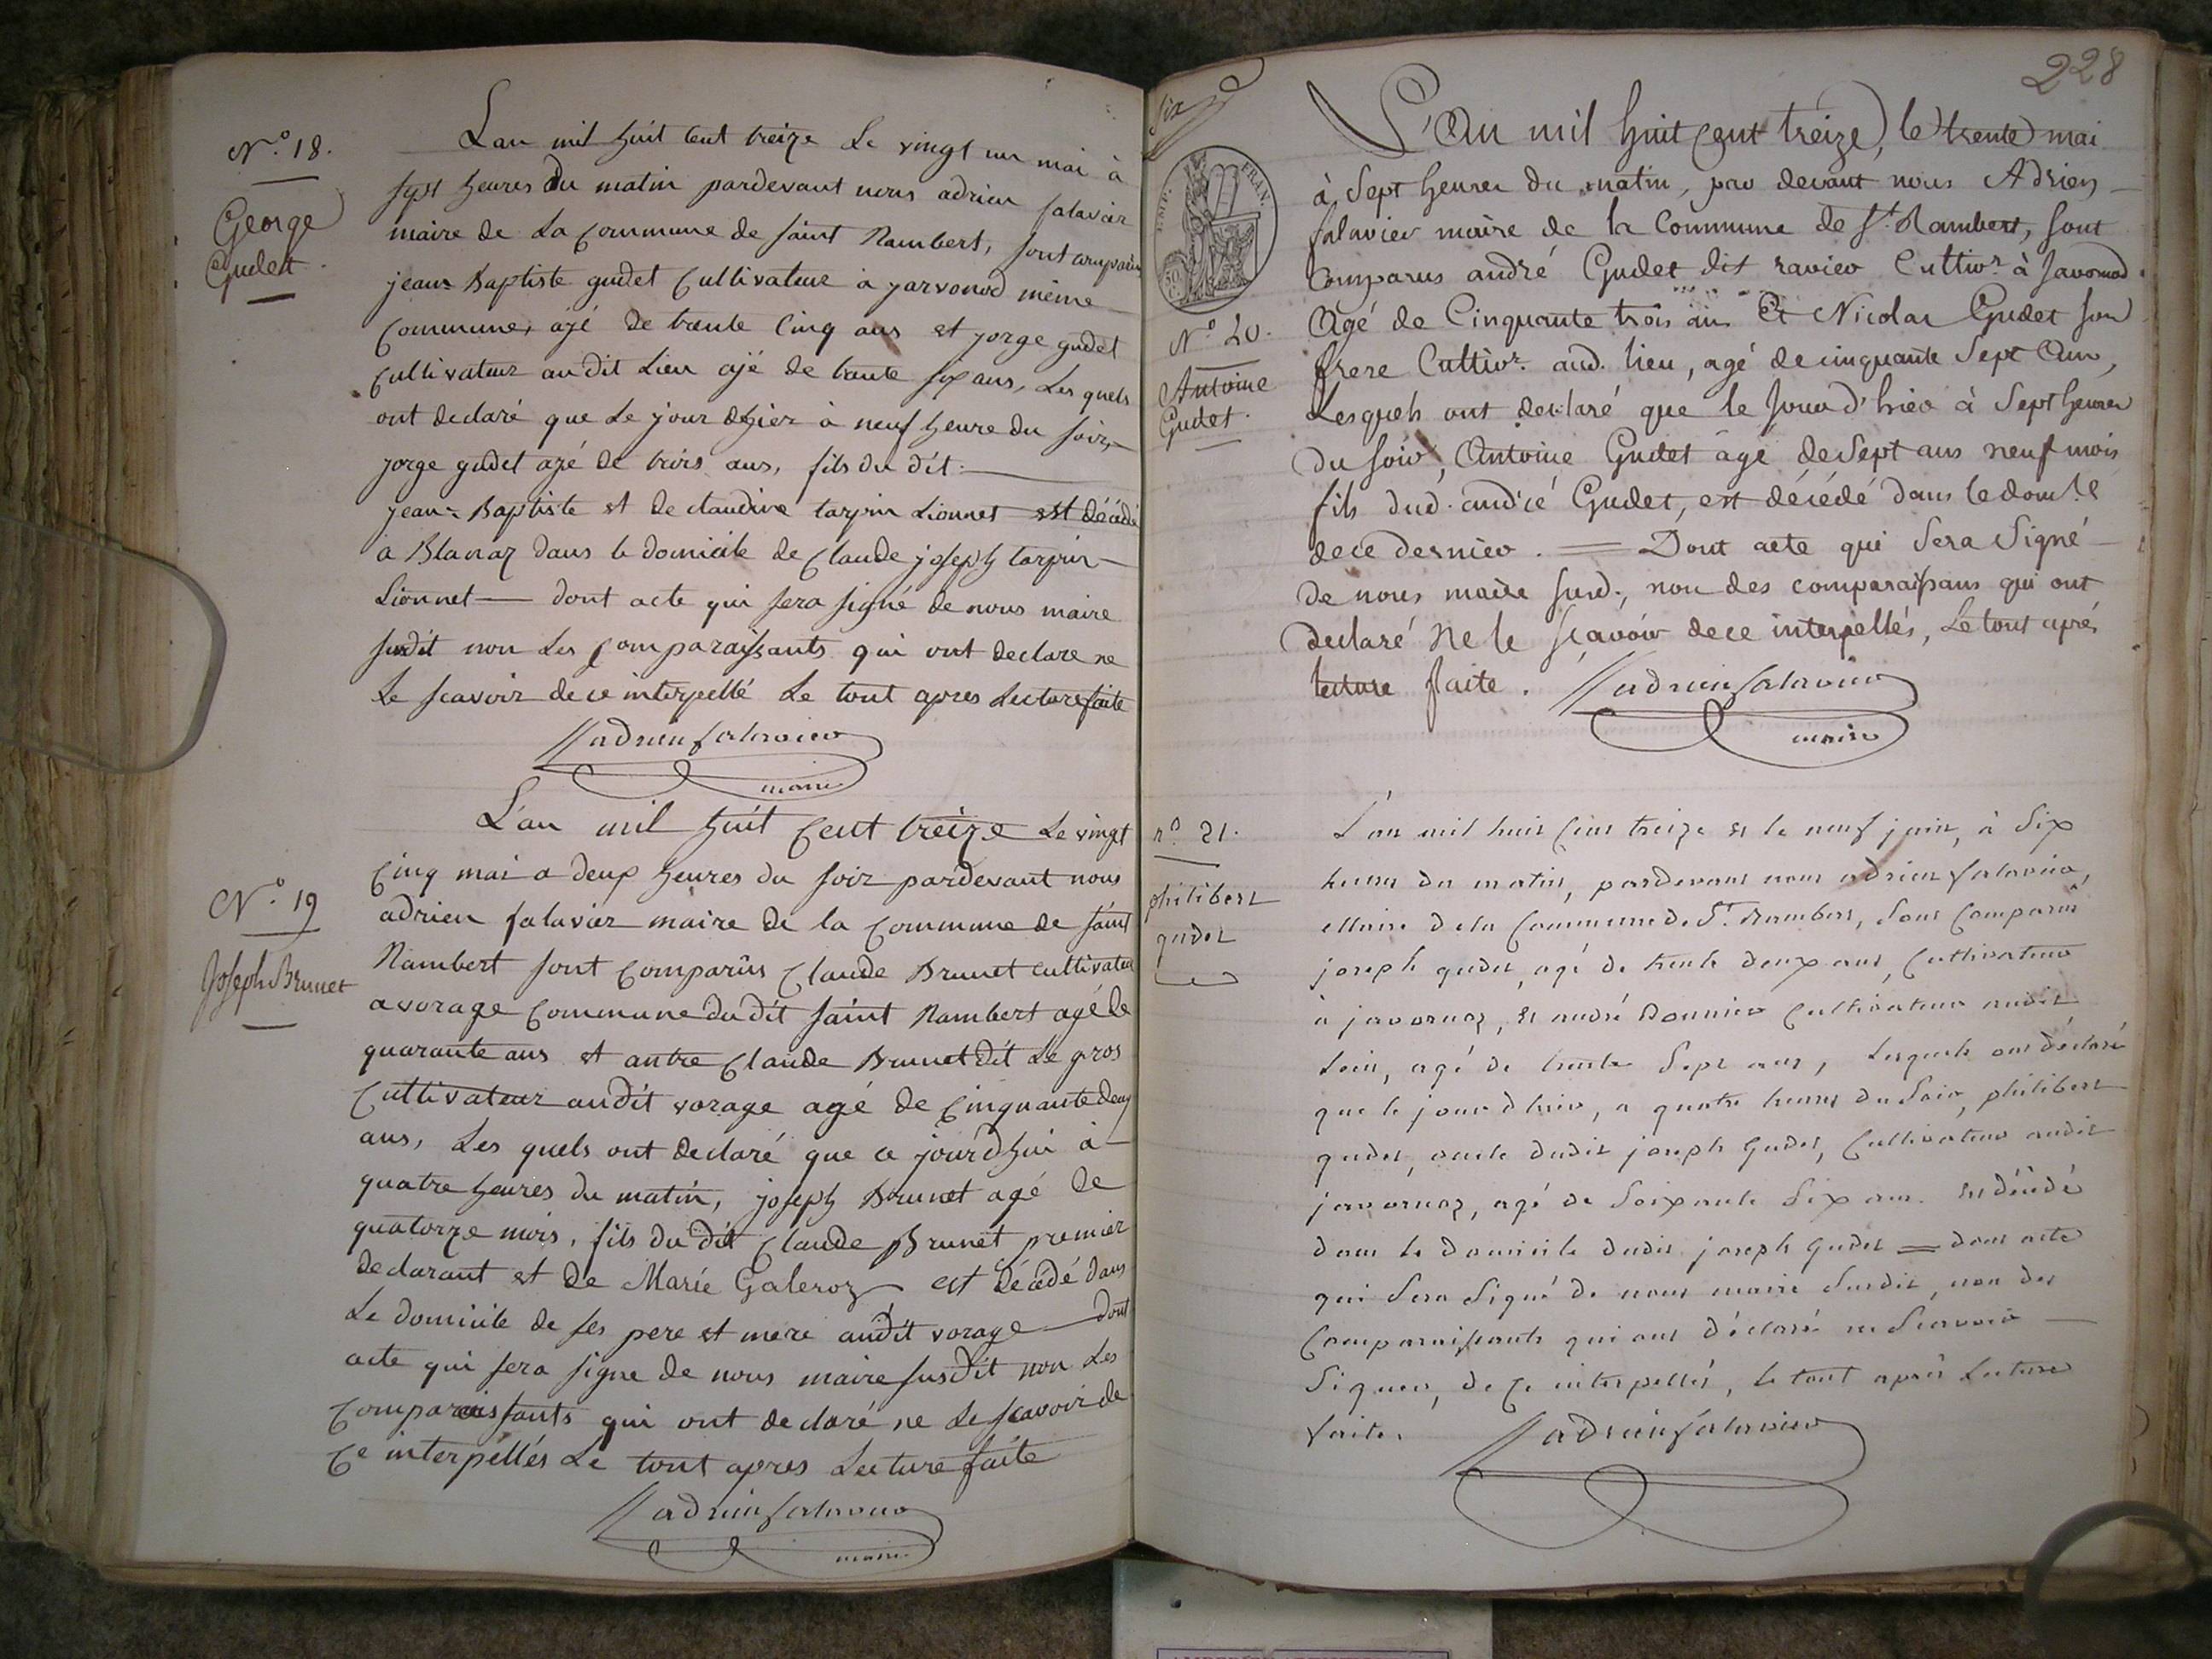 N.º 18.
George
Gudet.
L'an mil huit cent treize Le vingt un mai à
sept heures du matin pardevant nous adrien salavier
maire de La commune de saint Rambert, sont comparus
jean-Baptiste gudet Cultivateur a javornod même
Commune, âgé de trente Cinq ans et jorge gudet
Cultivateur audit Lieu agé de trente six ans, Les quels
ont declaré que Le jour dhier à neuf heure du soir,
jorge gudet agé de trois ans, fils du dit
jean-Baptiste et de claudine tarpin Lionnet est décédé
a Blanaz dans le domicile de Claude joseph tarpin
Lionnet dont acte qui sera signé de nous maire
susdit non Les comparaissants qui ont declare ne
Le scavoir de ce interpellé Le tout apres Lecture faite
adrien salavier
maire
N.º 19
Joseph Brunet
L'an mil huit cent treize Le vingt
Cinq mai a deux heures du soir pardevant nous
adrien salavier maire de la Commune de saint
Rambert sont comparus Claude Brunet cultivateur
a vorage Commune du dit saint Rambert agé de
quarante ans et autre Claude Brunet dit Le gros
Cultivateur audit vorage agé de Cinquante deux
ans, Les quels ont declaré que ce jourd'hui à
quatre heures du matin, joseph Brunet agé de
quatorze mois, fils du dit Claude Brunet premier
declarant et de Marie Galeroz est décédé dans
Le domicile de ses pere et mere audit vorage dont
acte qui sera signe de nous maire susdit non Les
comparaissants qui ont declaré ne Le scavoir de
Ce interpellés Le tout apres Lecture faite
adrien salavier
maire
228
six
EMP. FRAN.
50
N.º 20.
Antoine
Gudet.
L'An mil huit Cent treize, le trente mai
à Sept heures du matin, par devant nous Adrien
salavier maire de la Commune de S.t Rambert, sont
Comparus andré Gudet dit ravier Cultiv.r à Javornod
Agé de Cinquante trois ans Et Nicolas Gudet son
frere Cultiv.r aud. lieu, agé de cinquante Sept Ans,
Lesquels ont declaré que le jour d'hier à Sept heures
du soir, Antoine Gudet âgé de Sept ans neuf mois
fils dud. andré Gudet, est décédé dans le dom.le
de ce dernier. = Dont acte qui sera Signé
de nous maire susd., non des comparaissans qui ont
declaré Ne le sçavoir de ce interpellés, Le tout après
lecture faite.
adrien salavier
maire
n.º 21.
philibert
gudet
L'an mil huit cent treize et le neuf juin, à Six
heures du matin, pardevant nous adrien salavier,
Maire de la Commune de S.t Rambert, sont Comparus
joseph gudet, agé de trente deux ans, Cultivateur
à javornaz, et andré Bonnier Cultivateur audit
Lieu, agé de trente Sept ans, Lesquels ont déclaré
que le jour d'hier, a quatre heures du Soir, philibert
gudet, oncle dudit joseph gudet, Cultivateur audit
javornaz, agé de Soixante Six ans. est décédé
dans le domicile dudit joseph gudet = dont acte
qui Sera Signé de nous maire Susdit, non des
Comparaissants qui ont déclaré ne Scavoir
Signer, de Ce interpellés, le tout après Lecture
faite.
adrien salavier